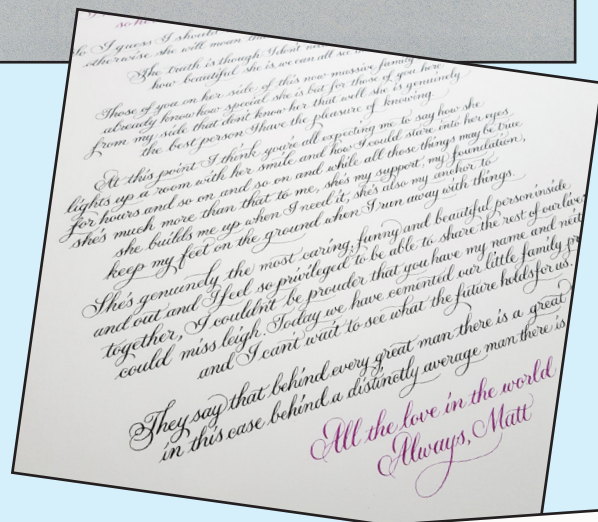 so he
So, I guess I should
otherwise she will moan
The truth is though I dont
how beautiful she is, we can all see
Those of you on her side of this now massive family
already know how special she is but for those of you here
from my side that dont know her that well she is genuinely
the best person I have the pleasure of knowing.
At this point I think you're all expecting me to say how she
lights up a room with her smile and how I could stare into her eyes
for hours and so on and so on and while all those things may be true
she's much more than that to me, she's my support, my foundation,
she builds me up when I need it, she's also my anchor to
keep my feet on the ground when I run away with things.
She's genuinely the most caring, funny and beautiful person inside
and out and I feel so privileged to be able to share the rest of our lives
together, I couldn't be prouder that you have my name and neit
could miss leigh. Today we have cemented our little family
and I cant wait to see what the future holds for us.
They say that behind every great man there is a great
in this case behind a distinctly average man there is
All the love in the world
Always, Matt